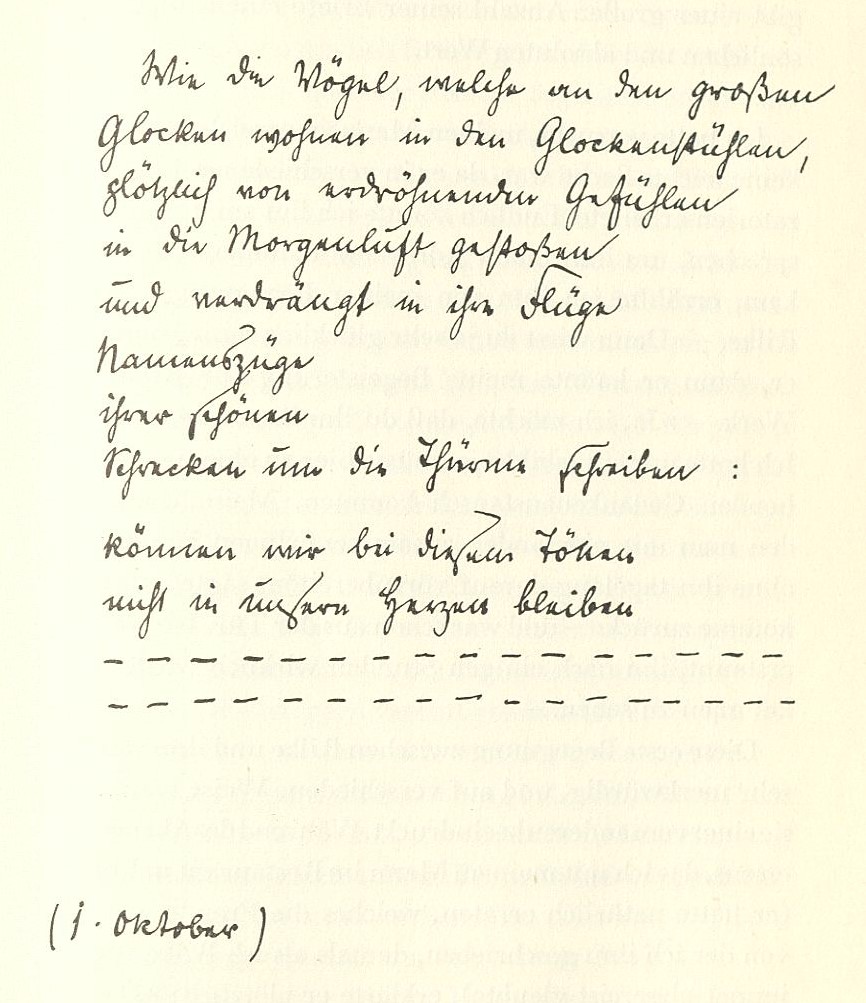 Wie die Vögel, welche an den großen
Glocken wohnen in den Glockenstühlen,
plötzlich von erdröhnenden Gefühlen
in die Morgenluft gestoßen
und verdrängt in ihre Flüge
Namenszüge
ihrer schönen
Schrecken um die Thürme schreiben :
können wir bei diesem Tönen
nicht in unsern Herzen bleiben
– – – – – – – – – – – – – – –
– – – – – – – – – – – – – – – –
(1. Oktober)